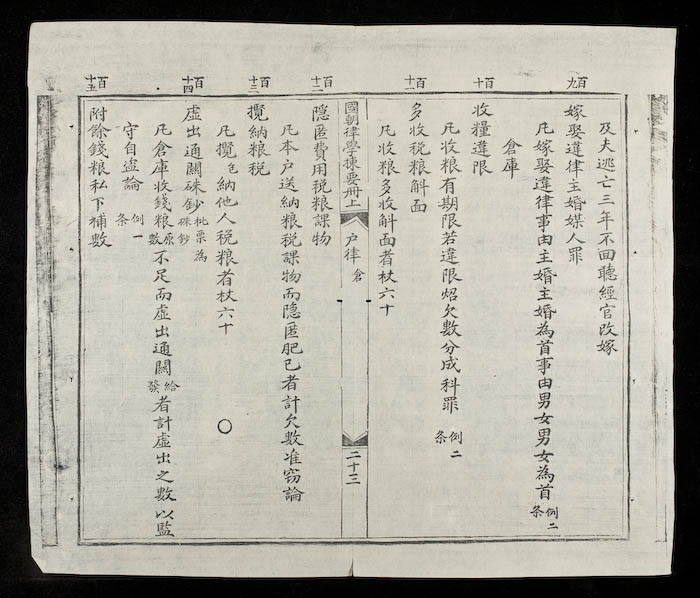 及夫逃亡三年不回聽經官改嫁
百九
嫁娶違律主婚媒人罪
凡嫁娶違律事由主婚主婚為首事由男女男女為首 例二条
倉庫
百十
收糧違限
凡收粮有期限若違限炤欠数分成科罪 例二条
百十一
多收税粮斛面
凡收粮多收斛面者杖六十
國朝律學揀要冊上 户律 倉 二十三
百十二
隱匿費用税粮課物
凡本户送納粮税課物而隐匿肥己者計欠数准窃論
百十三
攬納粮税
凡攬包納他人税粮者杖六十 〇
百十四
虚出通關硃鈔 批票為硃鈔
凡倉庫收錢粮原数不足而虚出通關給發者計虚出之数以監
守自盗論 例一条
百十五
附餘錢粮私下補数